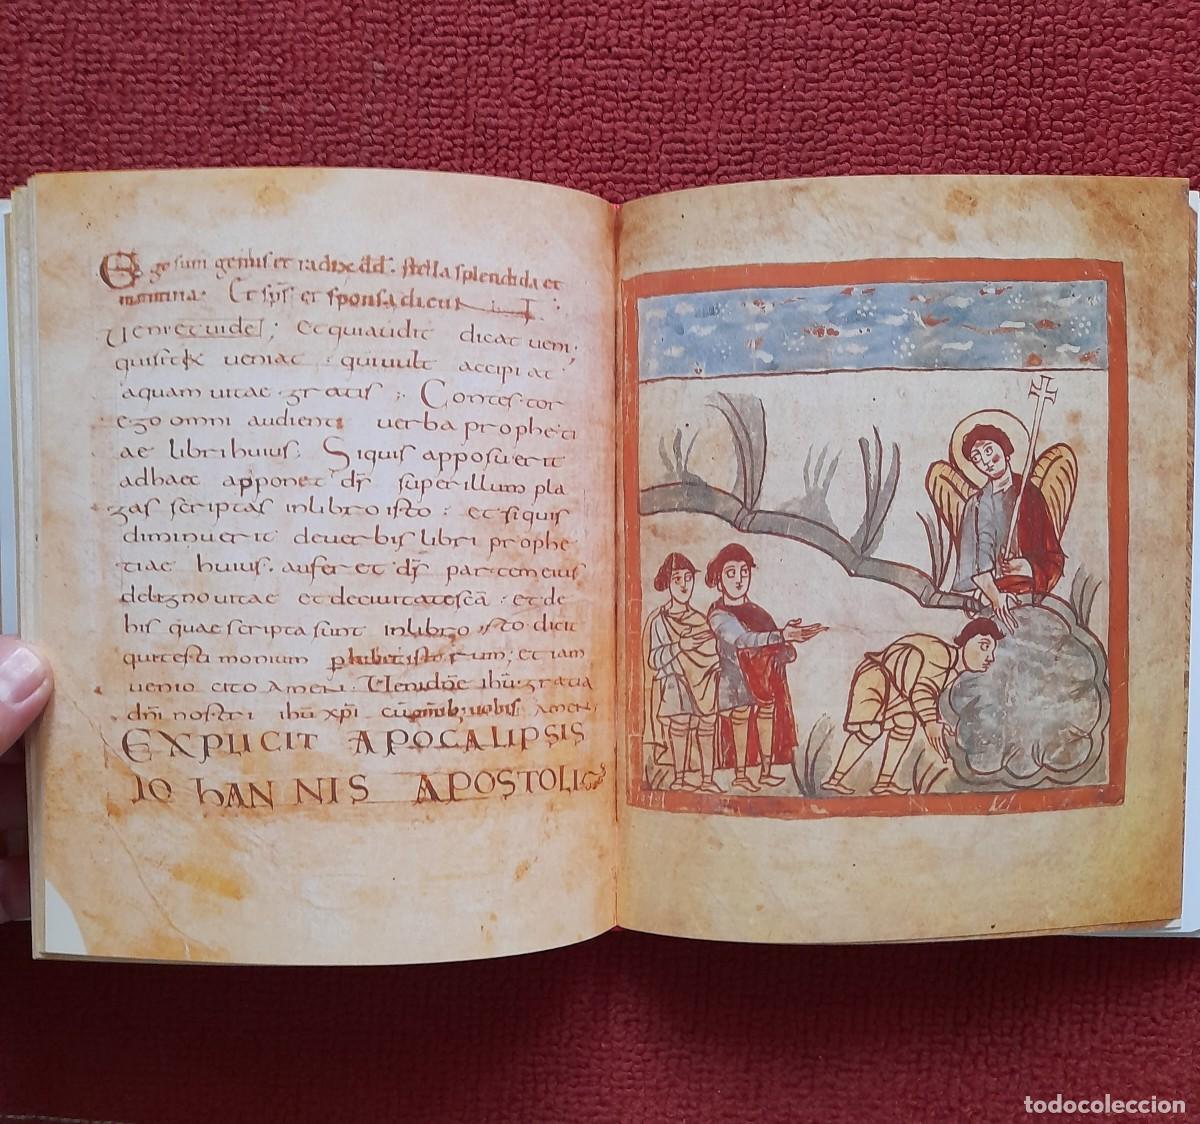 Ego sum genus et radix dd. stella splendida et
matutina. Et sps et sponsa dicunt
Veni et uide; et qui audit dicat ueni;
qui sitit ueniat. qui uult accipiat
aquam uitae gratis; Contestor
ego omni audienti uerba propheti
ae libri huius; Siquis apposuerit
ad haec apponet ds super illum pla
gas scriptas in libro isto: et siquis
diminuerit de uerbis libri prophe
tiae huius. auferet ds partem eius
de ligno uitae et de ciuitate scā et de
his quae scripta sunt in libro isto dicit
qui testimonium perhibet istorum; etiam
uenio cito amen. Ueni dñe ihū gratia
dñi nostri ihū xpi cū omnib; uobis amen
EXPLICIT APOCALIPSIS
IOhANNIS APOSTOLI
todocoleccion